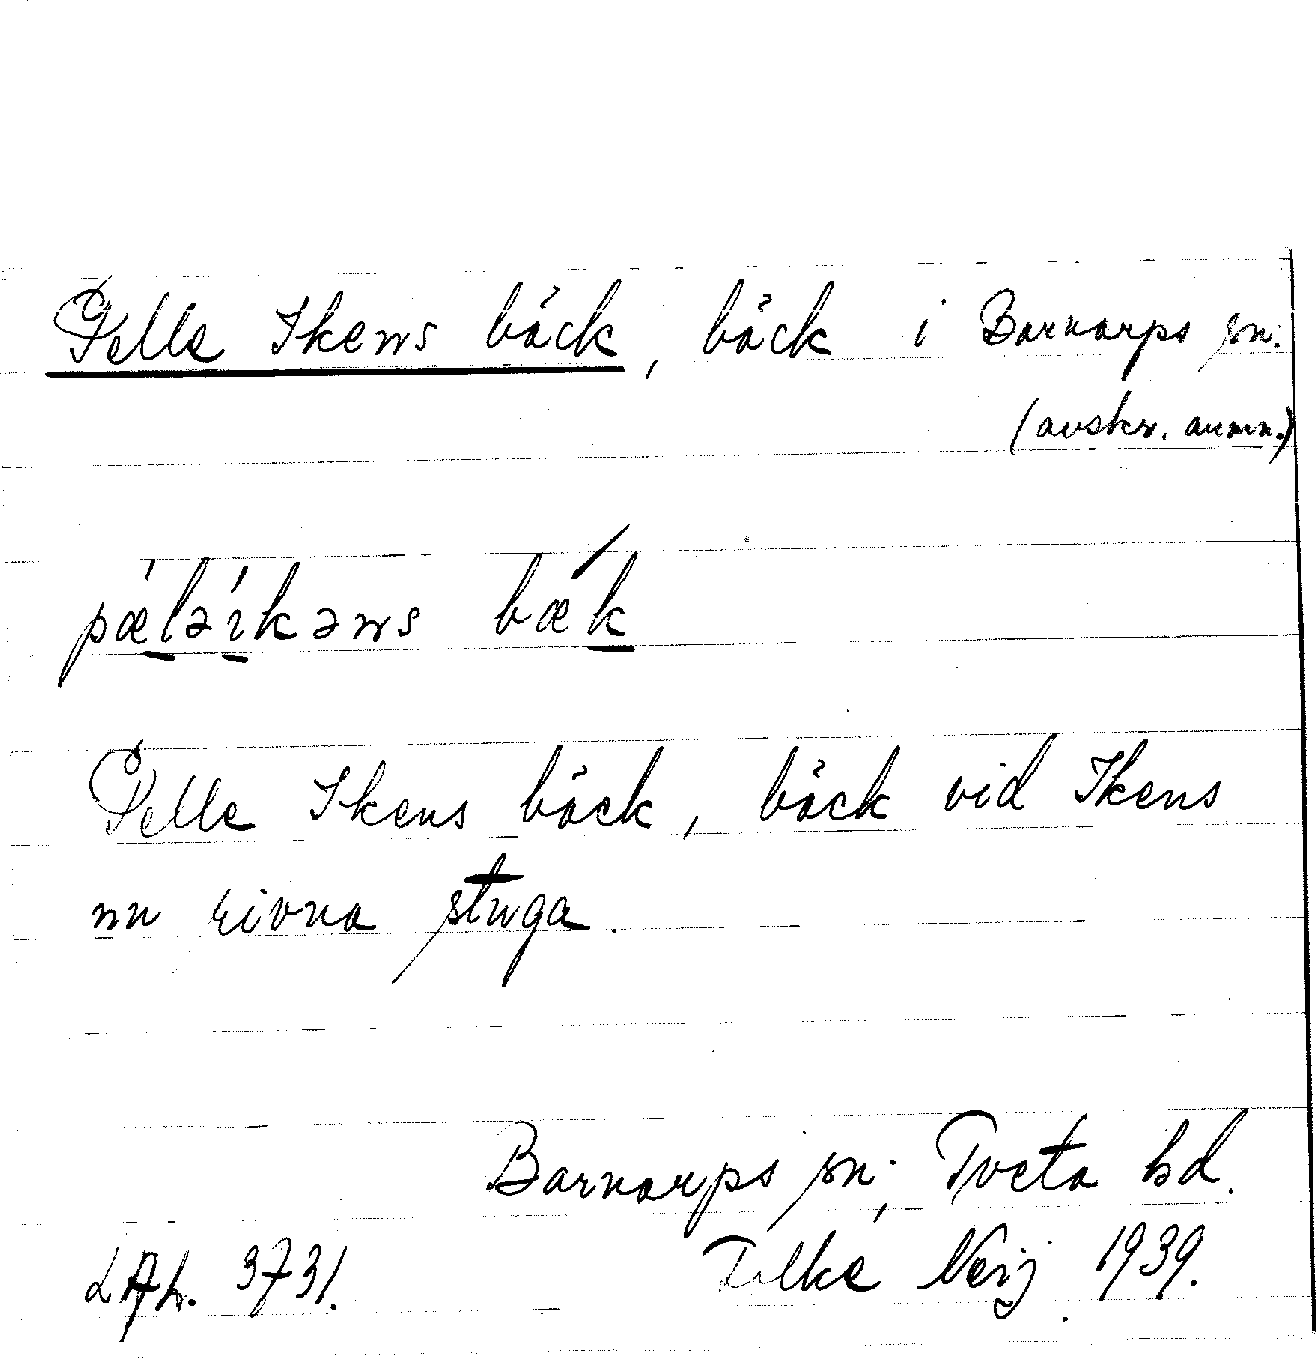 Pelle Ikens bäck, bäck i Barnarps sn.
(avskr. anmn.)
pæ̀lə íkəns bæ̀k
Pelle Ikens bäck, bäck vid Ikens
nu rivna stuga.
Barnarps sn; Tveta hd.
3731. 1939.